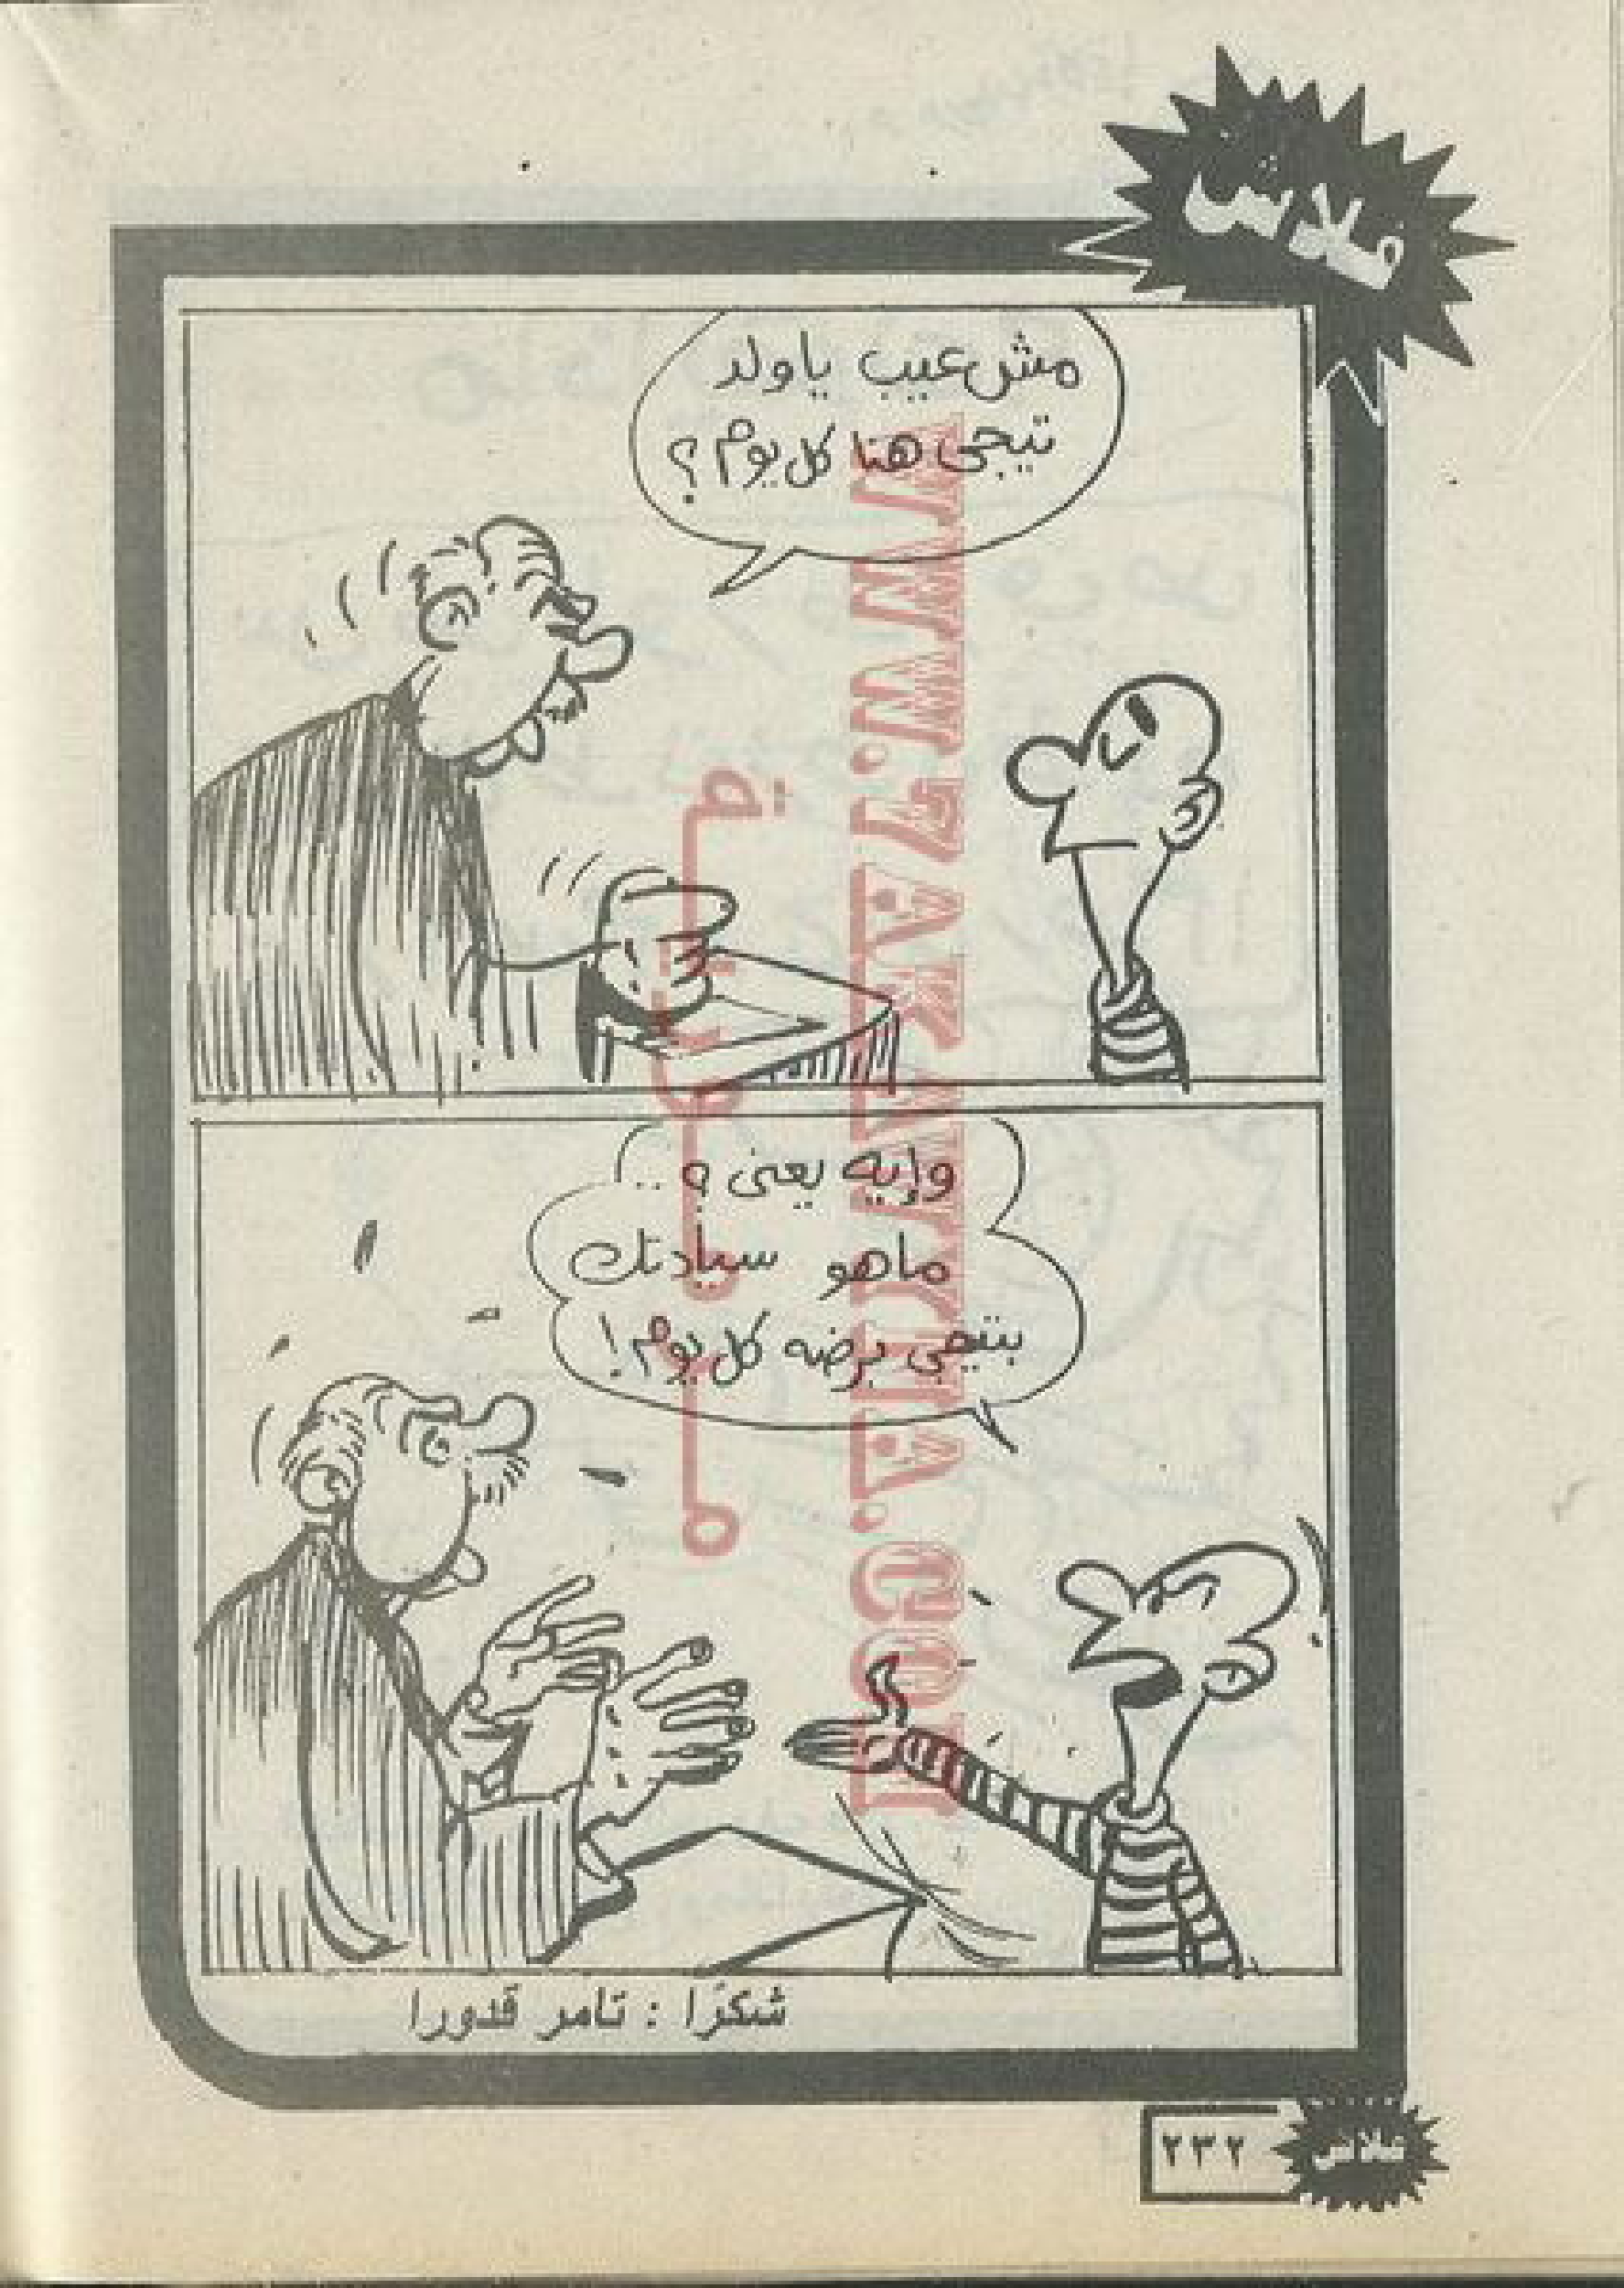 فلاش
مش عيب ياولد
تيجى هنا كل يوم؟
وإيه يعنى؟..
ماهو سيادتك
بتيجى برضه كل يوم!
شكرًا : تامر قدورا
فلاش
٢٣٢
WWW.ZAKAWYIA.COM